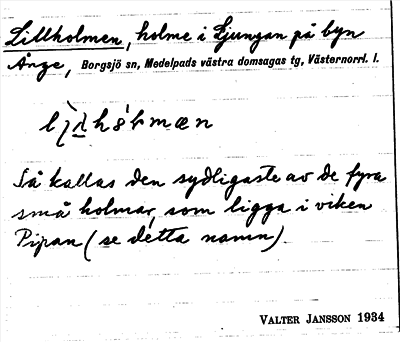 Lillholmen, holme i Ljungan på byn
Ånge, Borgsjö sn, Medelpads västra domsagas tg, Västernorrl. l.
Så kallas den sydligaste av de fyra
små holmar, som ligga i viken
Pipan (se detta namn).
VALTER JANSSON 1934